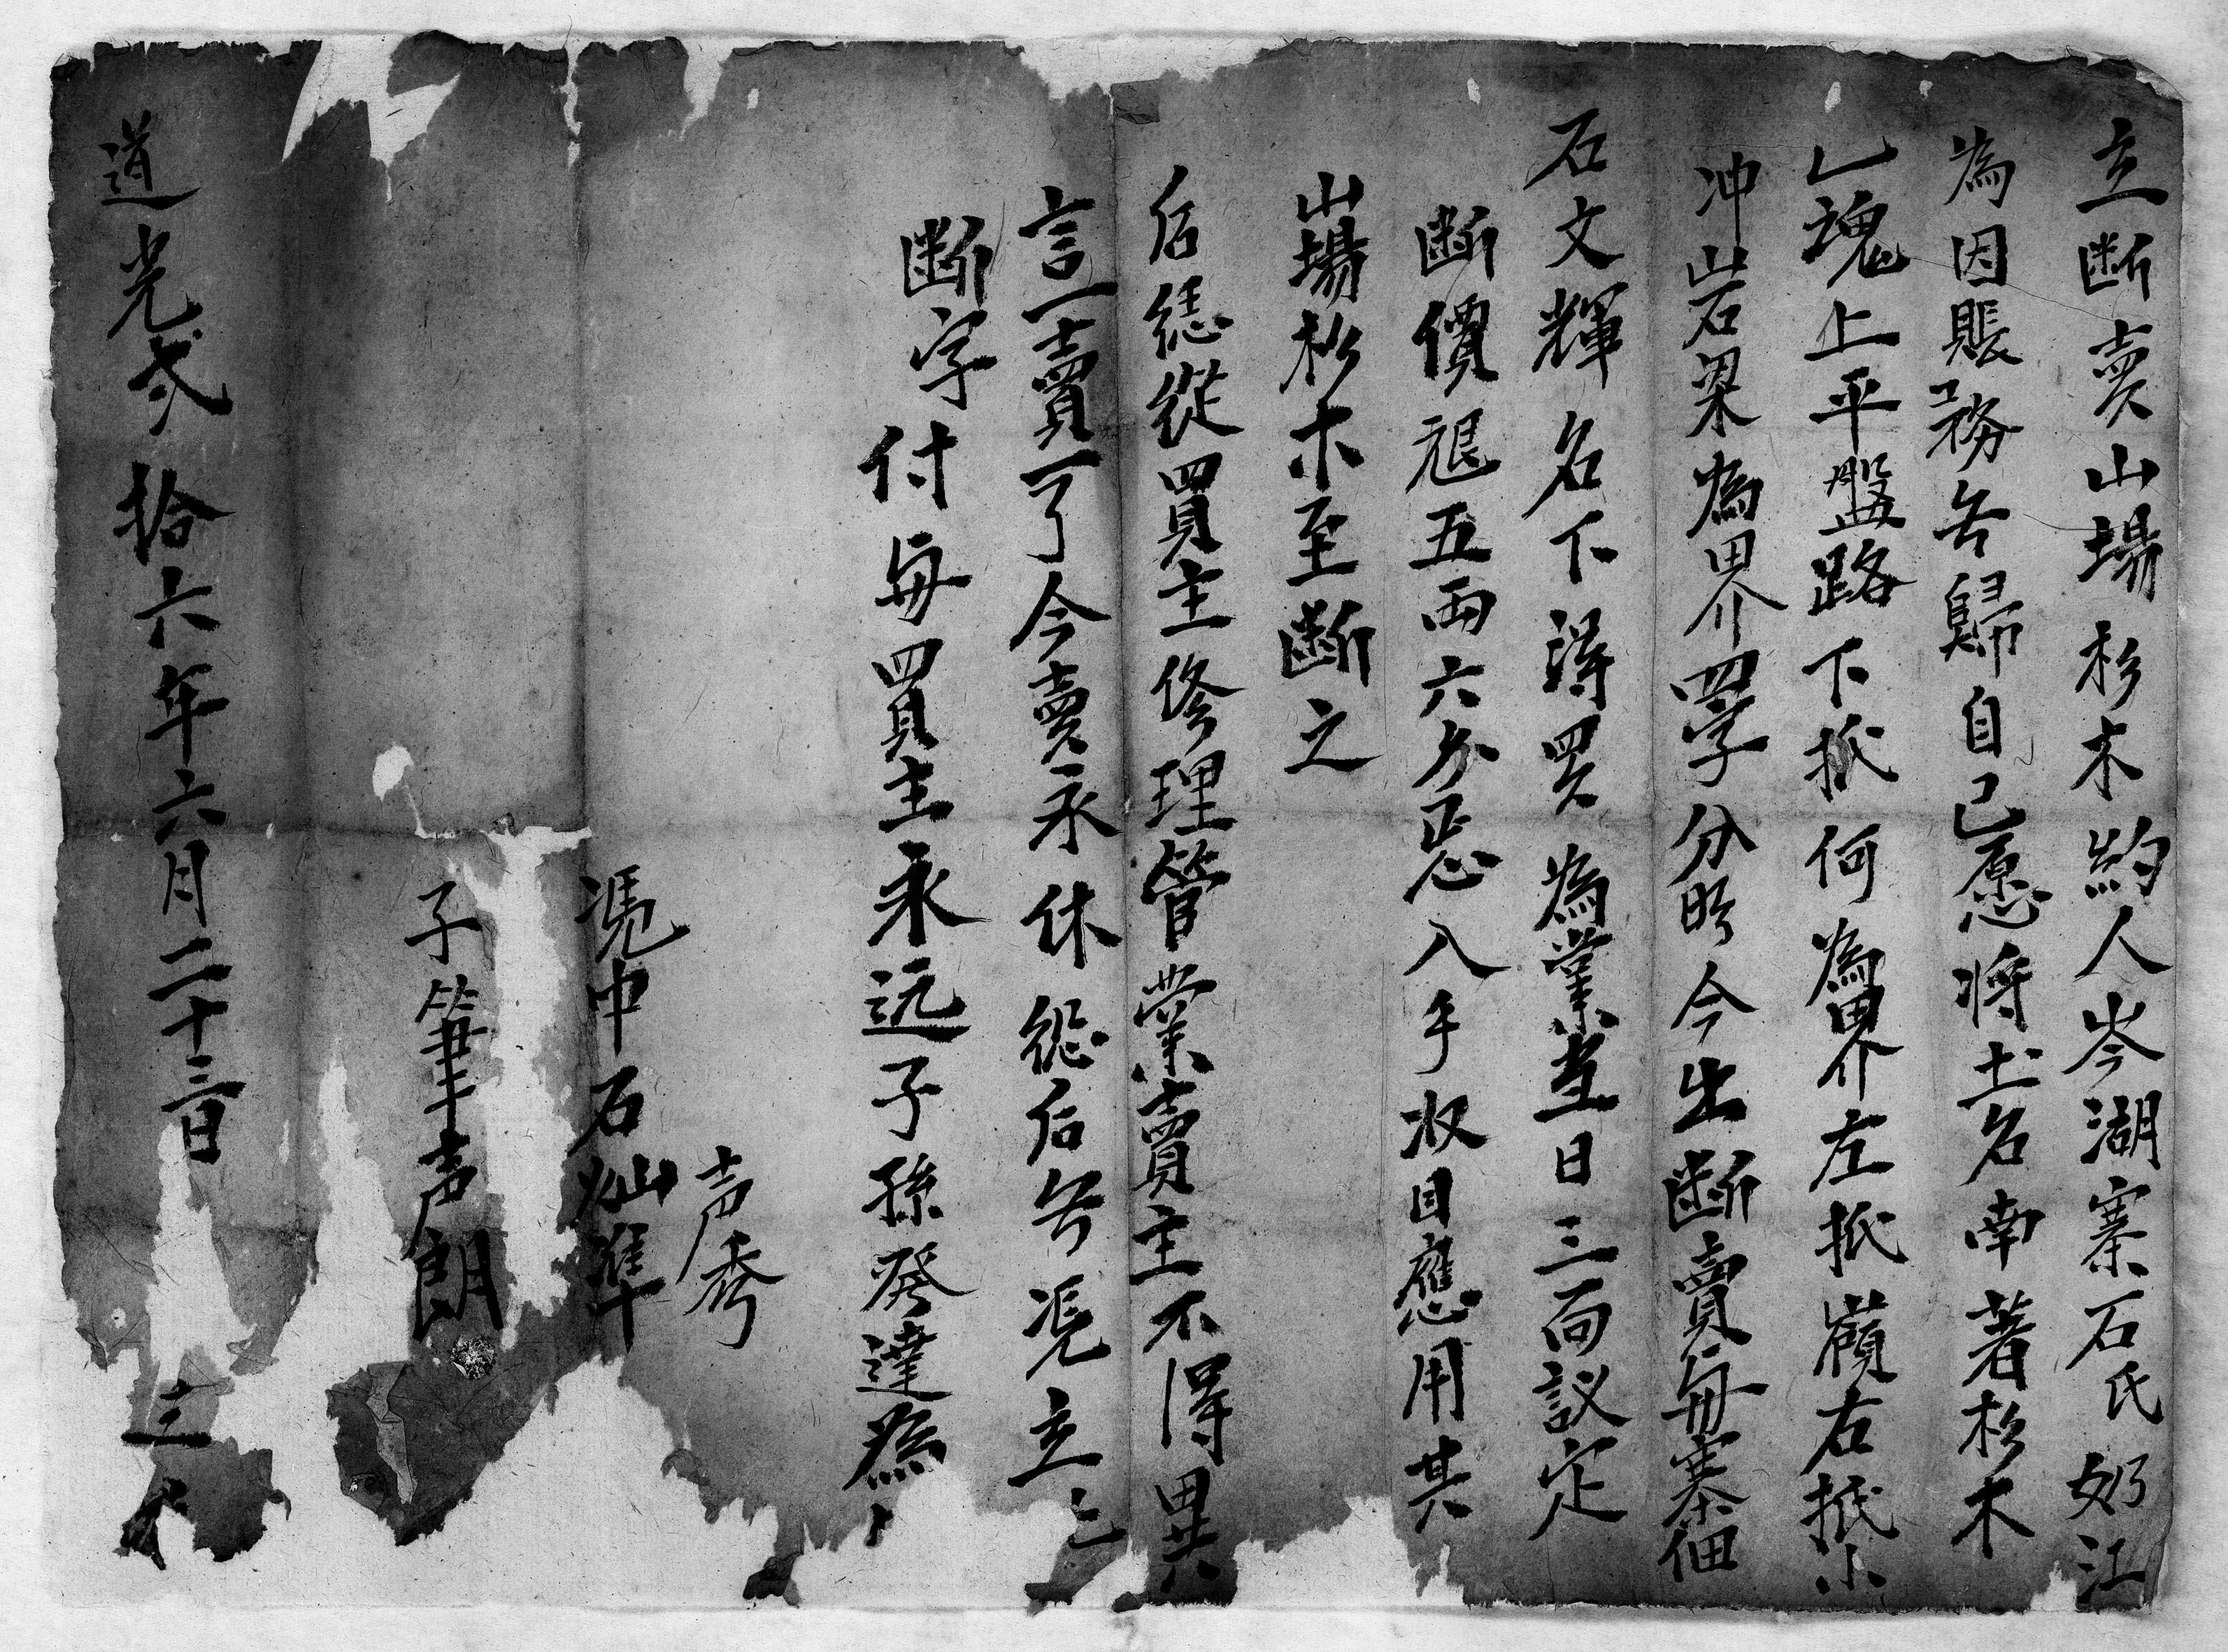 立断賣山場杉木約人岑湖寨石氏奶江
為因賬務無歸自己愿将土名南著杉木
乙塊上平盤路下抵何為界左抵嶺右抵小
冲岩梁為界四字分明今出断賣每寨佃
石文輝名下淂買為業當日三面議定
断價艮五両六分正入手收目應用其
山塲杉木至断之
后慿從買主修理管業賣主不得異
言一賣一了今賣永休從后無慿立
断字付每買主永远子孫發達為
声秀
慿中石灿準
子筆声朗
道光叁拾六年六月二十三日 立